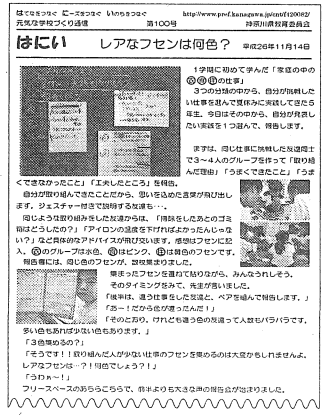 はてなをつなぐ にーズをつなぐ いのちをつなぐ
http://www.pref.kanagawa.jp/cnt/f420082/
元気な学校づくり通信
第100号
神奈川県教育委員会
はにい
レアなフセンは何色?
平成26年11月14日
1学期に初めて学んだ「家庭の中の
の仕事」
3つの分類の中から、自分が挑戦した
い仕事を選んで夏休みに実践してきた5
年生。今日はその中から、自分が発表し
たい実践を1つ選んで、報告します。
まずは、同じ仕事に挑戦した友達同士
で3~4人のグループを作って「取り組
んだ理由」「うまくできたこと」「うま
くできなかったこと」「工夫したところ」を報告。
自分が取り組んできたことだから、思いを込めた言葉が飛び出し
ます。ジェスチャー付きで説明する友達も…。
同じような取り組みをした友達からは、「掃除をしたあとのゴミ
箱はどうしたの?」「アイロンの温度を下げればよかったんじゃな
い?」など具体的なアドバイスが飛び交います。感想はフセンに記
入。のグループは水色、はピンク、は黄色のフセンです。
報告後には、同じ色のフセンが、数枚集まりました。
集まったフセンを重ねて貼りながら、みんなうれしそう。
そのタイミングをみて、先生が言いました。
「後半は、違う仕事をした友達と、ペアを組んで報告します。」
「あー!だから色が違ったんだ!」
「そのとおり。けれども違う色の友達って人数もバラバラです。
多い色もあれば少ない色もあります。」
「3色集めるの?」
「そうです!!取り組んだ人が少ない仕事のフセンを集めるのは大変かもしれませんよ。
レアなフセンは…?!何色でしょう?!」
「うわぁ~!」
フリースペースのあちらこちらで、前半よりも大きな声の報告会が始まりました。